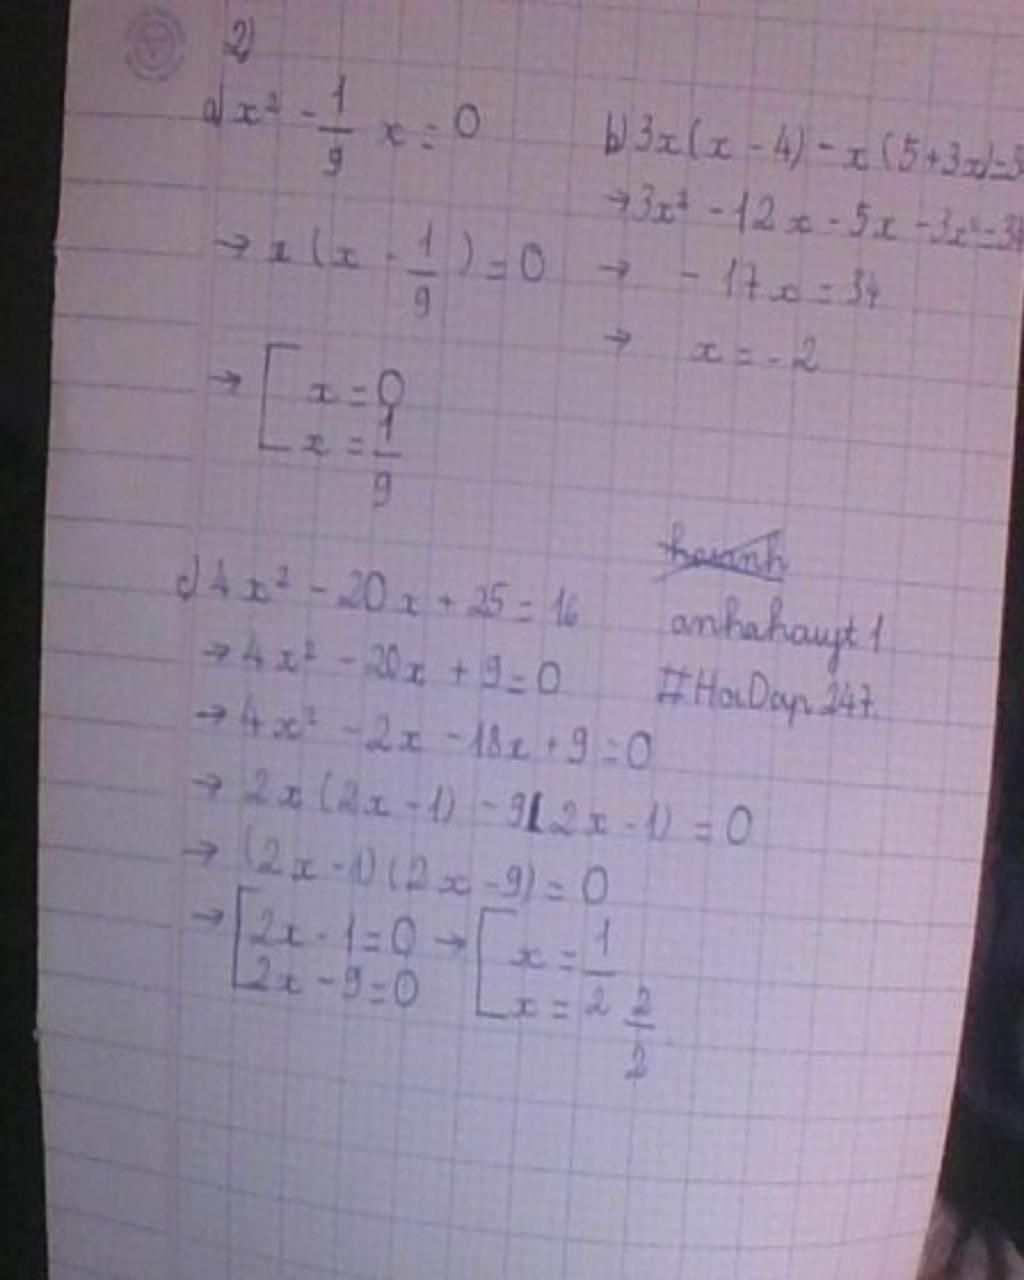 2)
a) x² - 1/9 x = 0
→ x (x - 1/9) = 0
→ [ x = 0
x = 1/9
b) 3x(x - 4) - x(5+3x)=3
→ 3x² - 12x - 5x - 3x² = 34
→ - 17x = 34
→ x = - 2
c) 4x² - 20x + 25 = 16
→ 4x² - 20x + 9 = 0
→ 4x² - 2x - 18x + 9 = 0
→ 2x(2x - 1) - 9(2x - 1) = 0
→ (2x - 1)(2x - 9) = 0
→ [ 2x - 1 = 0 → [ x = 1/2
2x - 9 = 0 x =
anhahauyt1
#HoiDap247